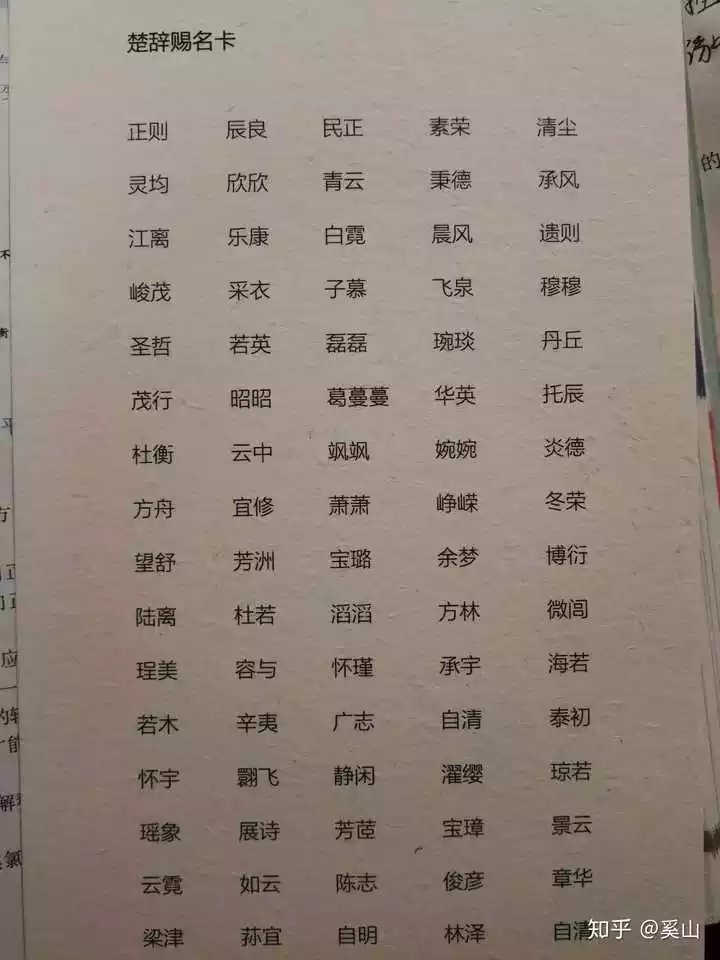 楚辞赐名卡
正则 辰良 民正 素荣 清尘
灵均 欣欣 青云 秉德 承风
江离 乐康 白霓 晨风 遗则
峻茂 采衣 子慕 飞泉 穆穆
圣哲 若英 磊磊 琬琰 丹丘
茂行 昭昭 葛蔓蔓 华英 托辰
杜衡 云中 飒飒 婉婉 炎德
方舟 宜修 萧萧 峥嵘 冬荣
望舒 芳洲 宝璐 余梦 博衍
陆离 杜若 滔滔 方林 微闾
珵美 容与 怀瑾 承宇 海若
若木 辛夷 广志 自清 泰初
怀宇 翾飞 静闲 濯缨 琼若
瑶象 展诗 芳茝 宝璋 景云
云霓 如云 陈志 俊彦 章华
梁津 荪宜 自明 林泽 自清
知乎 @奚山